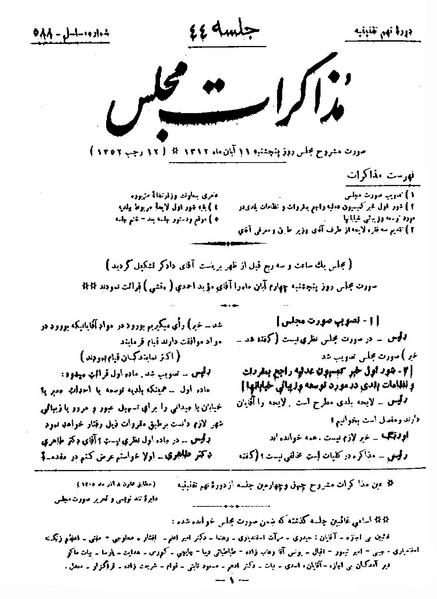 دورهٔ نهم تقنینیه
جلسه ۴۴
شماره مسلسل - ۵۸۸
مذاکرات مجلس
صورت مشروح مجلس روز پنجشنبه ۱۱ آبان ماه ۱۳۱۲ * (۱۲ رجب ۱۳۵۲)
فهرست مذاکرات
۱) تصویب صورت مجلس
۲) شور اول خبر کمیسیون عدلیه راجع بمقررات و نظامات بلدی در
مورد توسعه و زیبائی خیابانها
۳) تقدیم سه فقره لایحه از طرف آقای وزیر مالیه و معرفی آقای
خضری بمعاونت وزارتخانهٔ مزبوره
۴) بقیه شور اول لایحهٔ مربوط ببلدیه
۵) موقع و دستور جلسه بعد - ختم جلسه
(مجلس یک ساعت و سه ربع قبل از ظهر بریاست آقای دادگر تشکیل گردید)
صورت مجلس روز پنجشنبه چهارم آبان ماه را آقای مؤید احمدی (منشی) قرائت نمودند
[۱- تصویب صورت مجلس]
رئیس - در صورت مجلس نظری نیست؟ (گفته شد -
خیر) صورت مجلس تصویب شد
[۲- شور اول خبر کمیسیون عدلیه راجع بمقررات
و نظامات بلدی در مورد توسعه و زیبائی خیابانها]
رئیس - لایحه بلدی مطرح است. لایحه را آقایان
دارند و مفصل است بخوانیم؟
اورنگ - خیر لازم نیست. همه خوانده اند
رئیس - مذاکره در کلیات است مخالفی نیست؟ (گفته
شد - خیر) رأی میگیریم بورود در مواد آقایانیکه بورود در
مواد موافقت دارند قیام فرمایند
(اکثر نمایندگان قیام نمودند)
رئیس - تصویب شد. ماده اول قرائت میشود:
ماده اول - همینکه بلدیه توسعه یا احداث معبر یا
خیابان یا میدانی را برای تسهیل عبور و مرور یا زیبائی
شهر لازم دانست برطبق مقررات قبل رفتار خواهد نمود
رئیس - در ماده اول نظری نیست؟ آقای دکتر طاهری
دکتر طاهری - اولا خواستم عرض کنم در مقدمهٔ
* عین مذاکرات مشروح چهل و چهارمین جلسه از دورهٔ نهم تقنینیه
(مطابق قانون ۸ آذر ماه ۱۳۰۵)
دایرهٔ تند نویسی و تحریر صورت مجلس
** اسامی غائبین جلسه گذشته که ضمن صورت مجلس خوانده شده:
غائبین بی اجازه - آقایان:
دیر آمدگان بی اجازه - آقایان:
- ۱ -